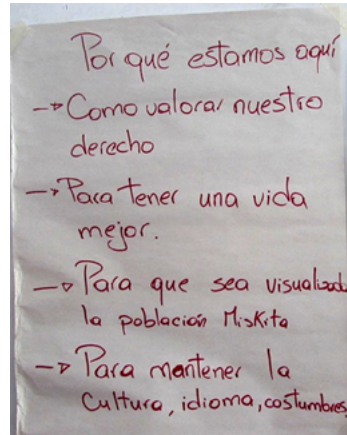 Por qué estamos aquí
→ Como valorar nuestro
derecho
→ Para tener una vida
mejor.
→ Para que sea visualizada
la población Miskita
→ Para mantener la
Cultura, idioma, costumbres,